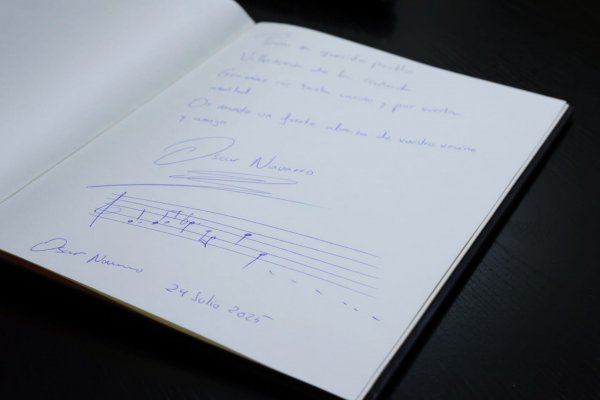 Para mi querido pueblo
Villanueva de la
Gracias por tanto cariño y por vuestra
amistad
Os mando un fuerte abrazo de vuestro vecino
y amigo
Oscar Navarro
Oscar Navarro
24 Julio 2025